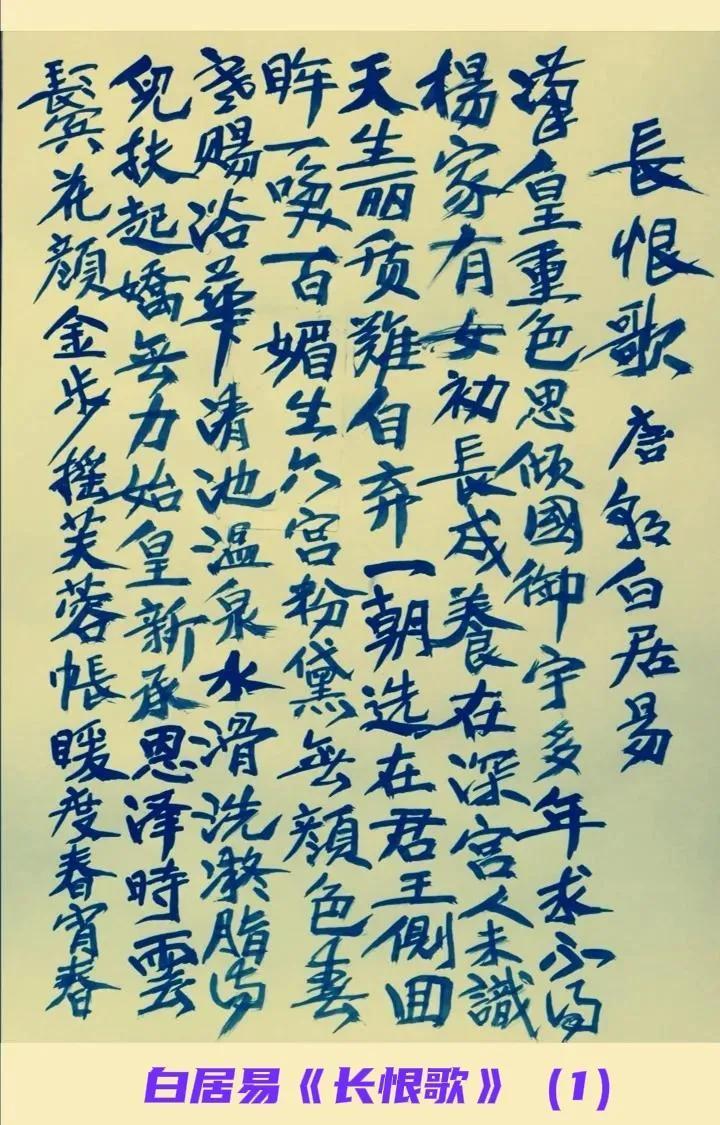 長恨歌 唐 白居易
漢皇重色思倾國御宇多年求不得
楊家有女初長成養在深宫人未識
天生丽质難自弃一朝选在君王側回
眸一咲百媚生六宫粉黛無顔色春
寒赐浴華清池温泉水滑洗凝脂侍
兒扶起嬌無力始皇新承恩泽時雲
鬢花顔金步摇芙蓉帳暖度春宵春
白居易《长恨歌》（1）